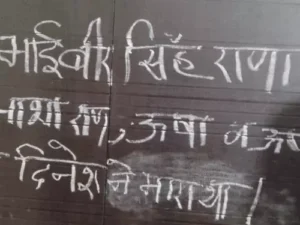 माईवीर सिंह राणा
राण, ऊषा व
दिनेश ने मारा था।